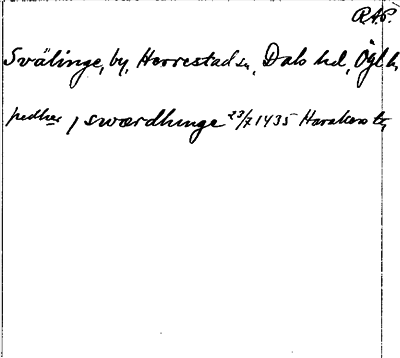 R.A.P.
Svälinge, by, Herrestad sn, Dals hd, Ögl.
pedher j swærdhunge 23/7 1435 Harakers